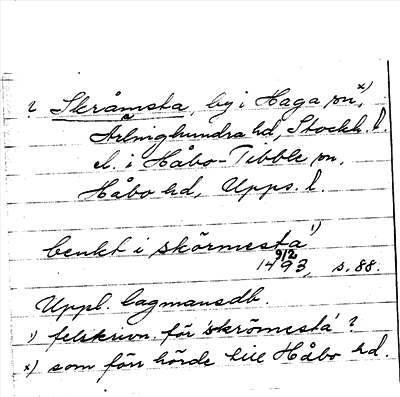 ? Skråmsta, by i Haga sn, x)
Ärlinghundra hd, Stockh. l.
el. i Håbo-Tibble sn,
Håbo hd, Upps. l.
benkt i skörmesta 1)
9/2 1493, s. 88.
Uppl. lagmansdb.
1) felskrivn. för 'skrömesta' ?
x) som förr hörde till Håbo hd.